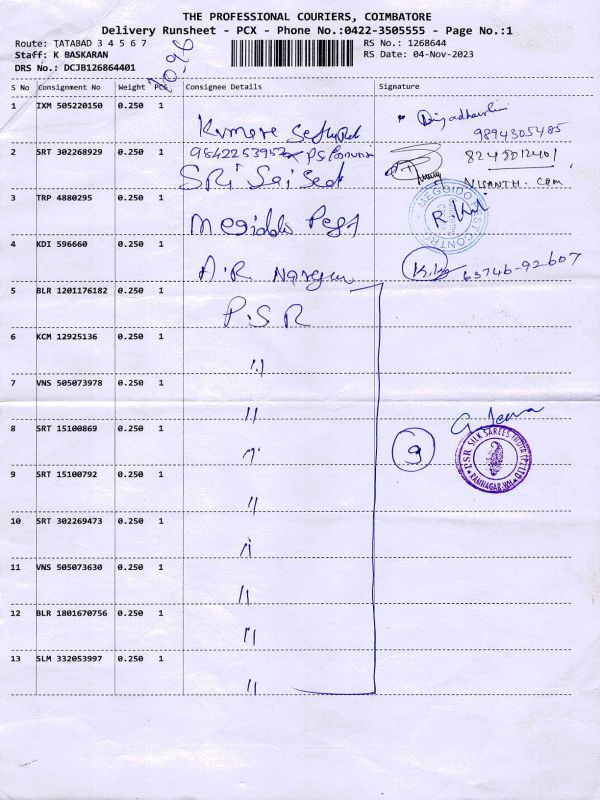 THE PROFESSIONAL COURIERS, COIMBATORE
Delivery Runsheet - PCX - Phone No.:0422-3505555 - Page No.:1
Route: TATABAD 3 4 5 6 7
RS No.: 1268644
Staff: K BASKARAN
RS Date: 04-Nov-2023
DRS No.: DCJB126864401
S No Consignment No Weight PCS Consignee Details Signature
1 IXM 505220150 0.250 1
9894305485
2 SRT 302268929 0.250 1 9842253952 8248012401
SRi Sai NISANTH. CBM
3 TRP 4880295 0.250 1
Megiddo Pest R.
4 KDI 596660 0.250 1
A.R. 63746-92607
5 BLR 1201176182 0.250 1 P.S.R
6 KCM 12925136 0.250 1 "
7 VNS 505073978 0.250 1 "
8 SRT 15100869 0.250 1 " 9
PSR SILK SAREES INDIA (P) LTD
RAMNAGAR
9 SRT 15100792 0.250 1 "
10 SRT 302269473 0.250 1 "
11 VNS 505073630 0.250 1 "
12 BLR 1801670756 0.250 1 "
13 SLM 332053997 0.250 1 "